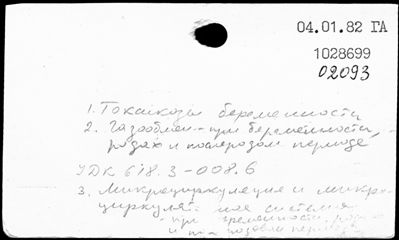 04.01.82 ГА
1028699
02093
1. Токсикозы беременности
2. Газообмен - при беременности,
родах и послеродом периоде
УДК 618.3-008.6
3. Микроциркуляция и микро-
циркулят ная система
при беременности, родах
и периоде